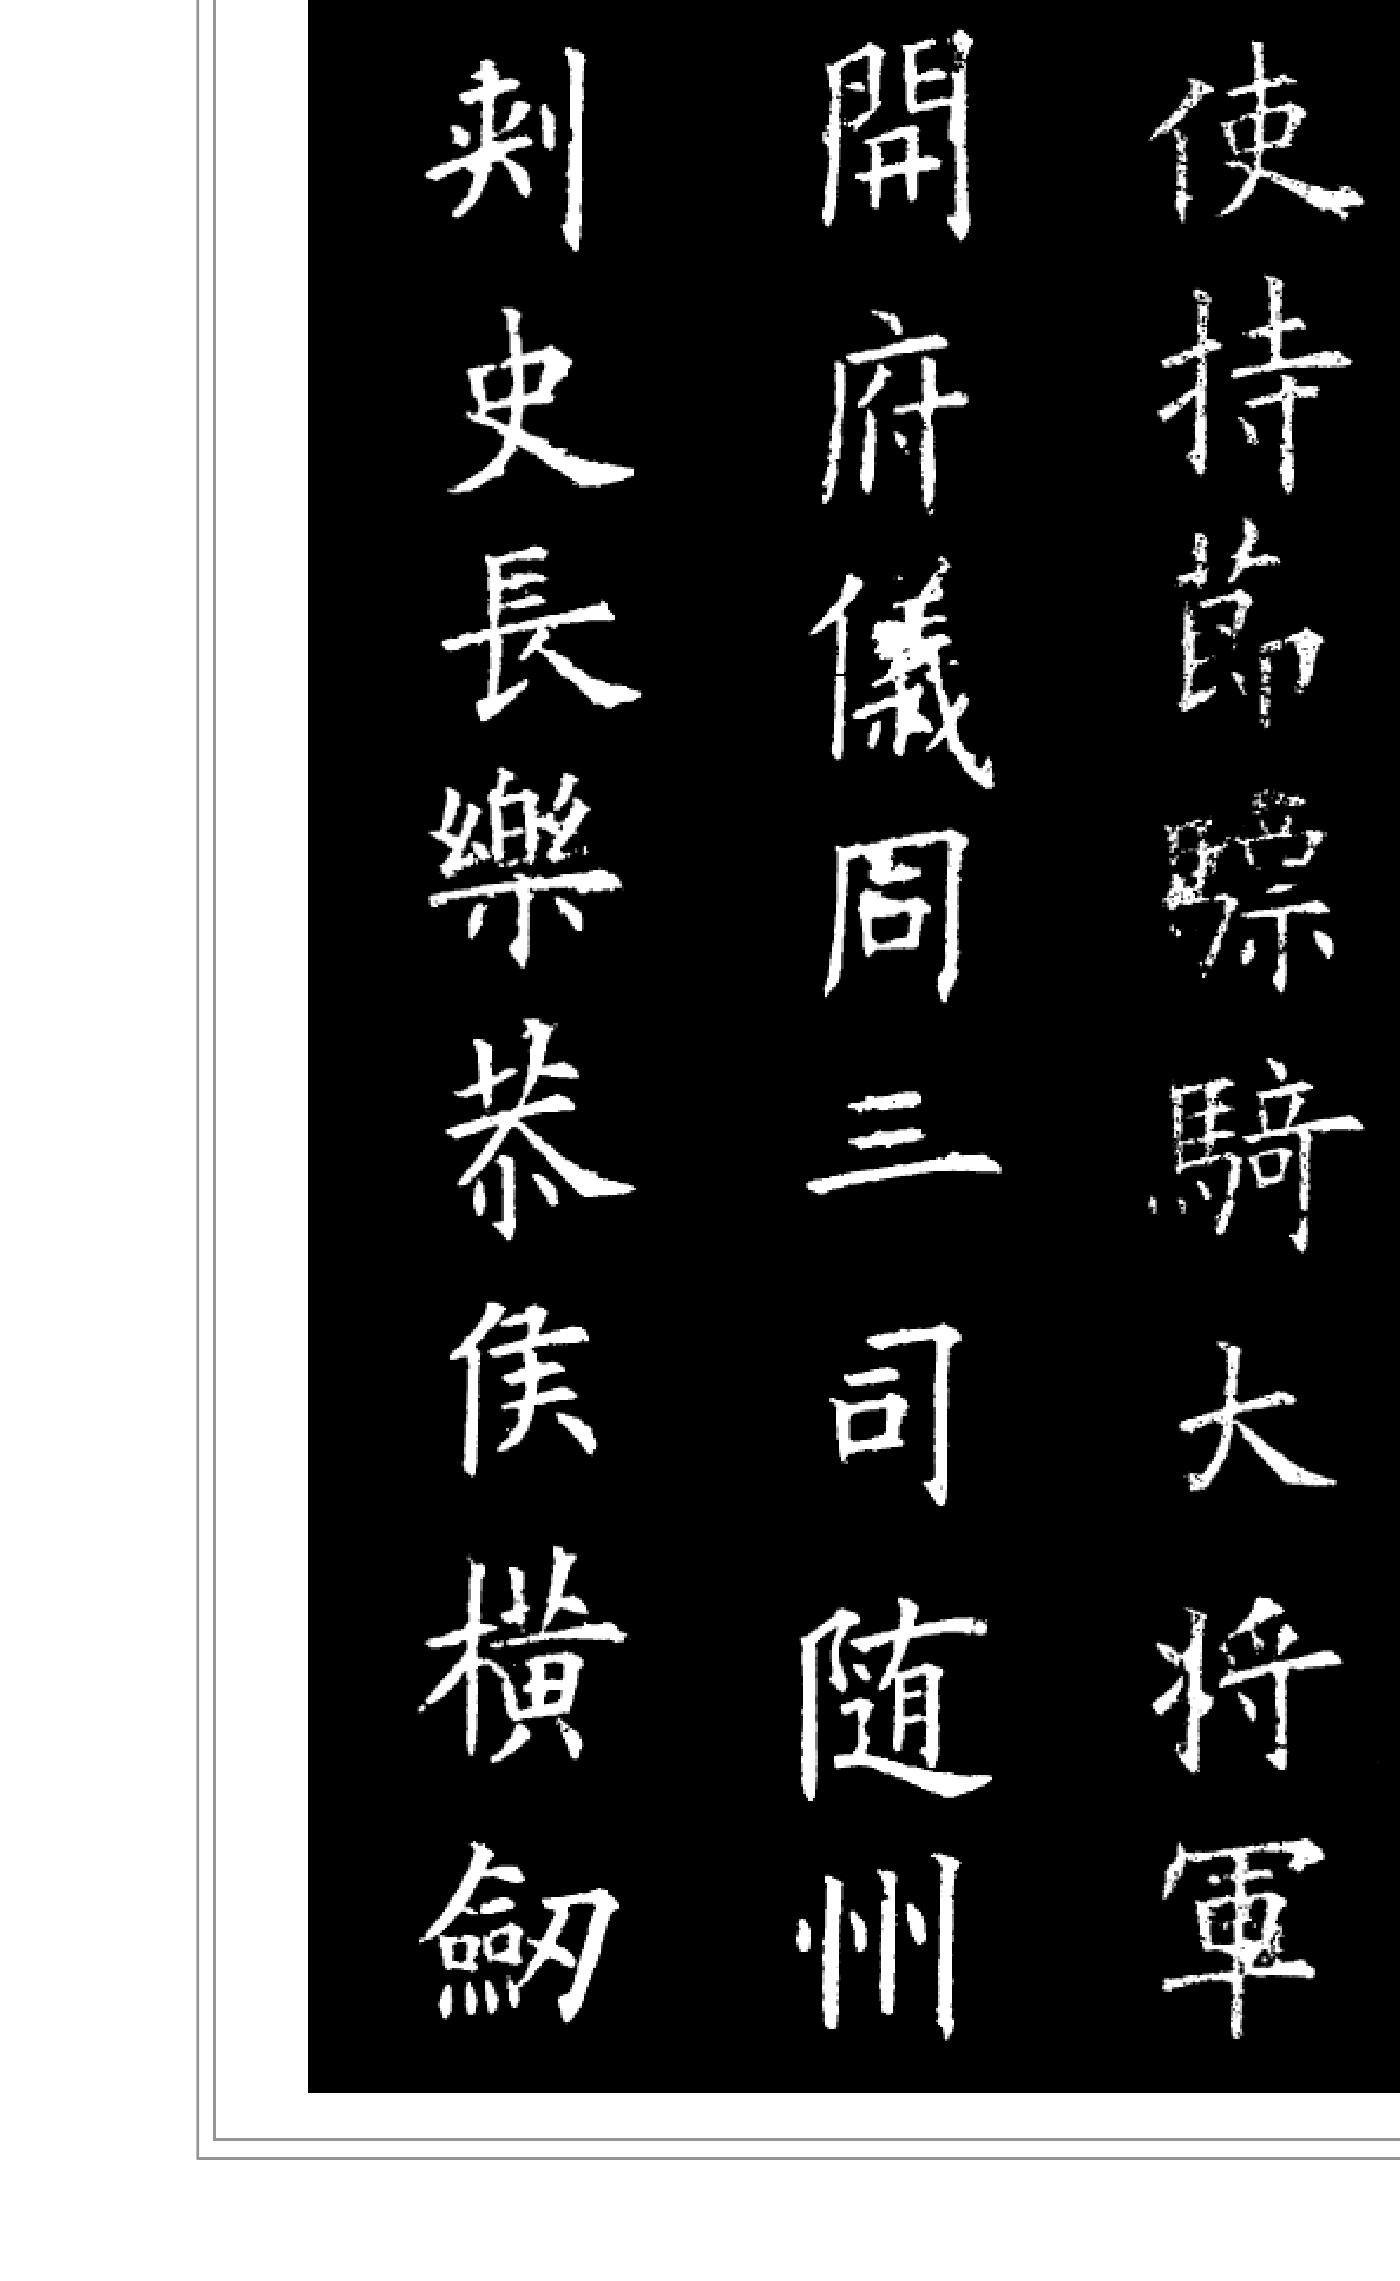 使持節驃騎大将軍
開府儀同三司随州
刺史長樂恭侯横劒